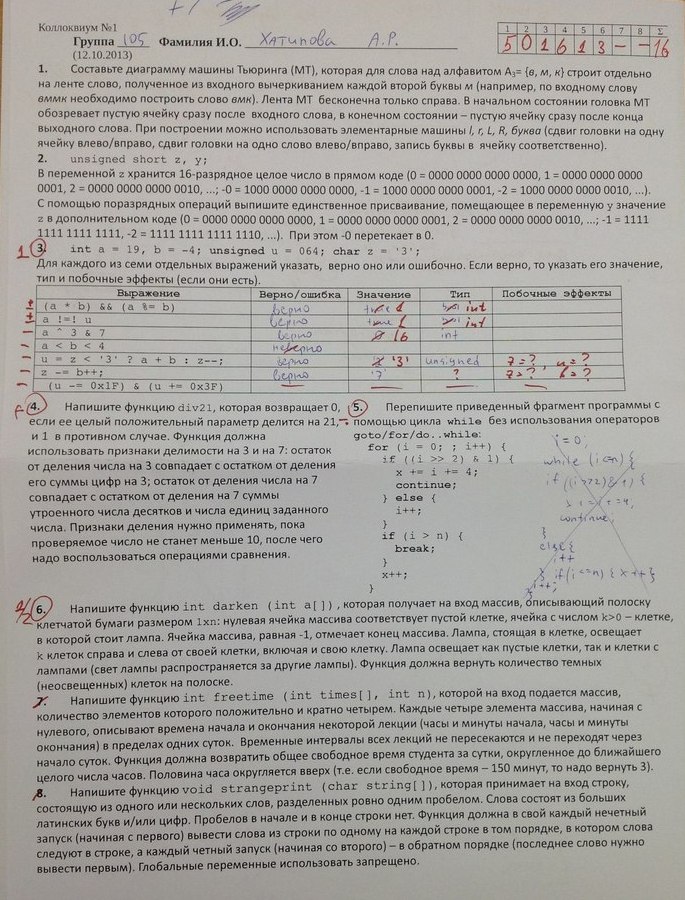 Коллоквиум №1
Группа 105 Фамилия И.О. Хатипова А.Р.
(12.10.2013)
1 2 3 4 5 6 7 8 Σ
5 0 1 6 1 3 - - 16
1. Составьте диаграмму машины Тьюринга (МТ), которая для слова над алфавитом A₃= {в, м, к} строит отдельно
на ленте слово, полученное из входного вычеркиванием каждой второй буквы м (например, по входному слову
вммк необходимо построить слово вмк). Лента МТ бесконечна только справа. В начальном состоянии головка МТ
обозревает пустую ячейку сразу после входного слова, в конечном состоянии – пустую ячейку сразу после конца
выходного слова. При построении можно использовать элементарные машины l, r, L, R, буква (сдвиг головки на одну
ячейку влево/вправо, сдвиг головки на одно слово влево/вправо, запись буквы в ячейку соответственно).
2. unsigned short z, y;
В переменной z хранится 16-разрядное целое число в прямом коде (0 = 0000 0000 0000 0000, 1 = 0000 0000 0000
0001, 2 = 0000 0000 0000 0010, ...; -0 = 1000 0000 0000 0000, -1 = 1000 0000 0000 0001, -2 = 1000 0000 0000 0010, ...).
С помощью поразрядных операций выпишите единственное присваивание, помещающее в переменную y значение
z в дополнительном коде (0 = 0000 0000 0000 0000, 1 = 0000 0000 0000 0001, 2 = 0000 0000 0000 0010, ...; -1 = 1111
1111 1111 1111, -2 = 1111 1111 1111 1110, ...). При этом -0 перетекает в 0.
1 3. int a = 19, b = -4; unsigned u = 064; char z = '3';
Для каждого из семи отдельных выражений указать, верно оно или ошибочно. Если верно, то указать его значение,
тип и побочные эффекты (если они есть).
Выражение Верно/ошибка Значение Тип Побочные эффекты
+ (a * b) && (a %= b) верно 1 int
+ a !=! u верно 1 int
– a ^ 3 & 7 верно 16 int
– a < b < 4 неверно
– u = z < '3' ? a + b : z--; верно '3' unsigned z=? , u=?
– z -= b++; верно '7' ? z=? , b=?
– (u -= 0x1F) & (u += 0x3F) — — — —
4. Напишите функцию div21, которая возвращает 0,
если ее целый положительный параметр делится на 21,
и 1 в противном случае. Функция должна
использовать признаки делимости на 3 и на 7: остаток
от деления числа на 3 совпадает с остатком от деления
его суммы цифр на 3; остаток от деления числа на 7
совпадает с остатком от деления на 7 суммы
утроенного числа десятков и числа единиц заданного
числа. Признаки деления нужно применять, пока
проверяемое число не станет меньше 10, после чего
надо воспользоваться операциями сравнения.
5. Перепишите приведенный фрагмент программы с
помощью цикла while без использования операторов
goto/for/do..while:
for (i = 0; ; i++) {
if ((i >> 2) & 1) {
x += i += 4;
continue;
} else {
i++;
}
if (i > n) {
break;
}
x++;
}
i = 0;
while (i<=n) {
if ((i>>2)&1) {
x+=i+=4;
continue;
}
else {
i++
} if(i<=n) { x++}
i++;
1/2 6. Напишите функцию int darken (int a[]), которая получает на вход массив, описывающий полоску
клетчатой бумаги размером 1xn: нулевая ячейка массива соответствует пустой клетке, ячейка с числом k>0 – клетке,
в которой стоит лампа. Ячейка массива, равная -1, отмечает конец массива. Лампа, стоящая в клетке, освещает
k клеток справа и слева от своей клетки, включая и свою клетку. Лампа освещает как пустые клетки, так и клетки с
лампами (свет лампы распространяется за другие лампы). Функция должна вернуть количество темных
(неосвещенных) клеток на полоске.
7. Напишите функцию int freetime (int times[], int n), которой на вход подается массив,
количество элементов которого положительно и кратно четырем. Каждые четыре элемента массива, начиная с
нулевого, описывают времена начала и окончания некоторой лекции (часы и минуты начала, часы и минуты
окончания) в пределах одних суток. Временные интервалы всех лекций не пересекаются и не переходят через
начало суток. Функция должна возвратить общее свободное время студента за сутки, округленное до ближайшего
целого числа часов. Половина часа округляется вверх (т.е. если свободное время – 150 минут, то надо вернуть 3).
8. Напишите функцию void strangeprint (char string[]), которая принимает на вход строку,
состоящую из одного или нескольких слов, разделенных ровно одним пробелом. Слова состоят из больших
латинских букв и/или цифр. Пробелов в начале и в конце строки нет. Функция должна в свой каждый нечетный
запуск (начиная с первого) вывести слова из строки по одному на каждой строке в том порядке, в котором слова
следуют в строке, а каждый четный запуск (начиная со второго) – в обратном порядке (последнее слово нужно
вывести первым). Глобальные переменные использовать запрещено.